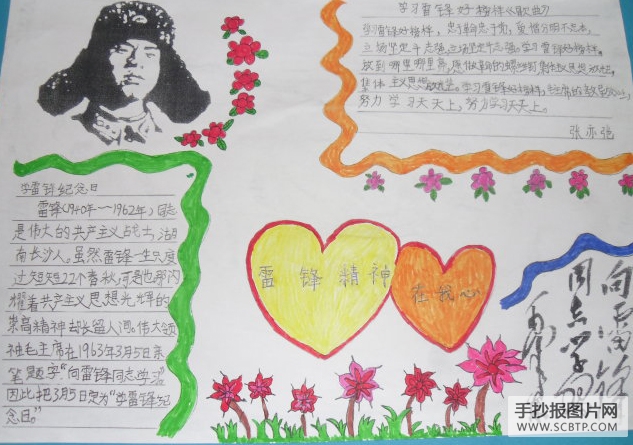 学习雷锋好榜样《歌曲》
学习雷锋好榜样，忠于革命忠于党，爱憎分明不忘本，
立场坚定斗志强，立场坚定斗志强。学习雷锋好榜样，
放到哪里哪里亮，愿做革命的螺丝钉，集体主义思想放光芒，
集体主义思想放光芒。学习雷锋好榜样，毛主席的教导记心上，
努力学习天天上，努力学习天天上。
张亦弛
学雷锋纪念日
雷锋(1940年——1962年)同志
是伟大的共产主义战士，湖
南长沙人。虽然雷锋一生只度
过短短22个春秋，可是他那闪
耀着共产主义思想光辉的
崇高精神却长留人间。伟大领
袖毛主席在1963年3月5日亲
笔题字"向雷锋同志学习"
因此把3月5日定为"学雷锋纪
念日。"
雷锋精神
在我心
向雷锋
同志学习
毛泽东
手抄报图片网
WWW.SCBTP.COM